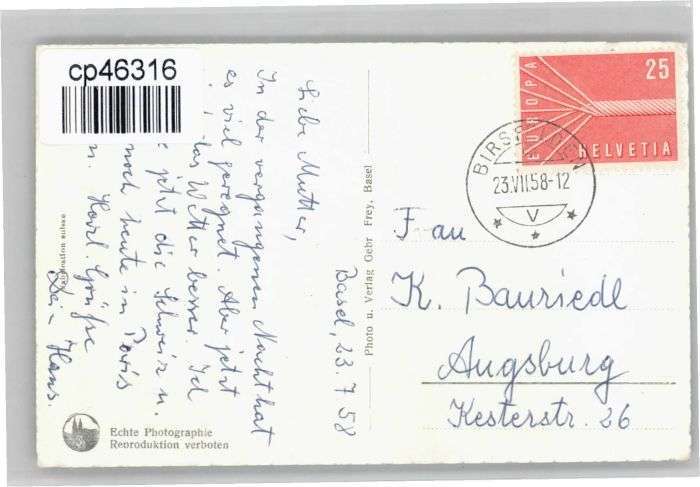 cp46316
Basel, 23.7.58
Liebe Mutter,
In der vergangenen Nacht hat
es viel geregnet. Aber jetzt
das Wetter besser. Ich
jetzt die Schweiz u.
noch heute in Paris
n. Herzl. Grüße
Dein Hans.
Echte Photographie
Reproduktion verboten
Photo u. Verlag Gebr Frey, Basel
EUROPA
25
HELVETIA
23.VII.58-12
V
Frau
K. Bauriedl
Augsburg
Kesterstr. 26